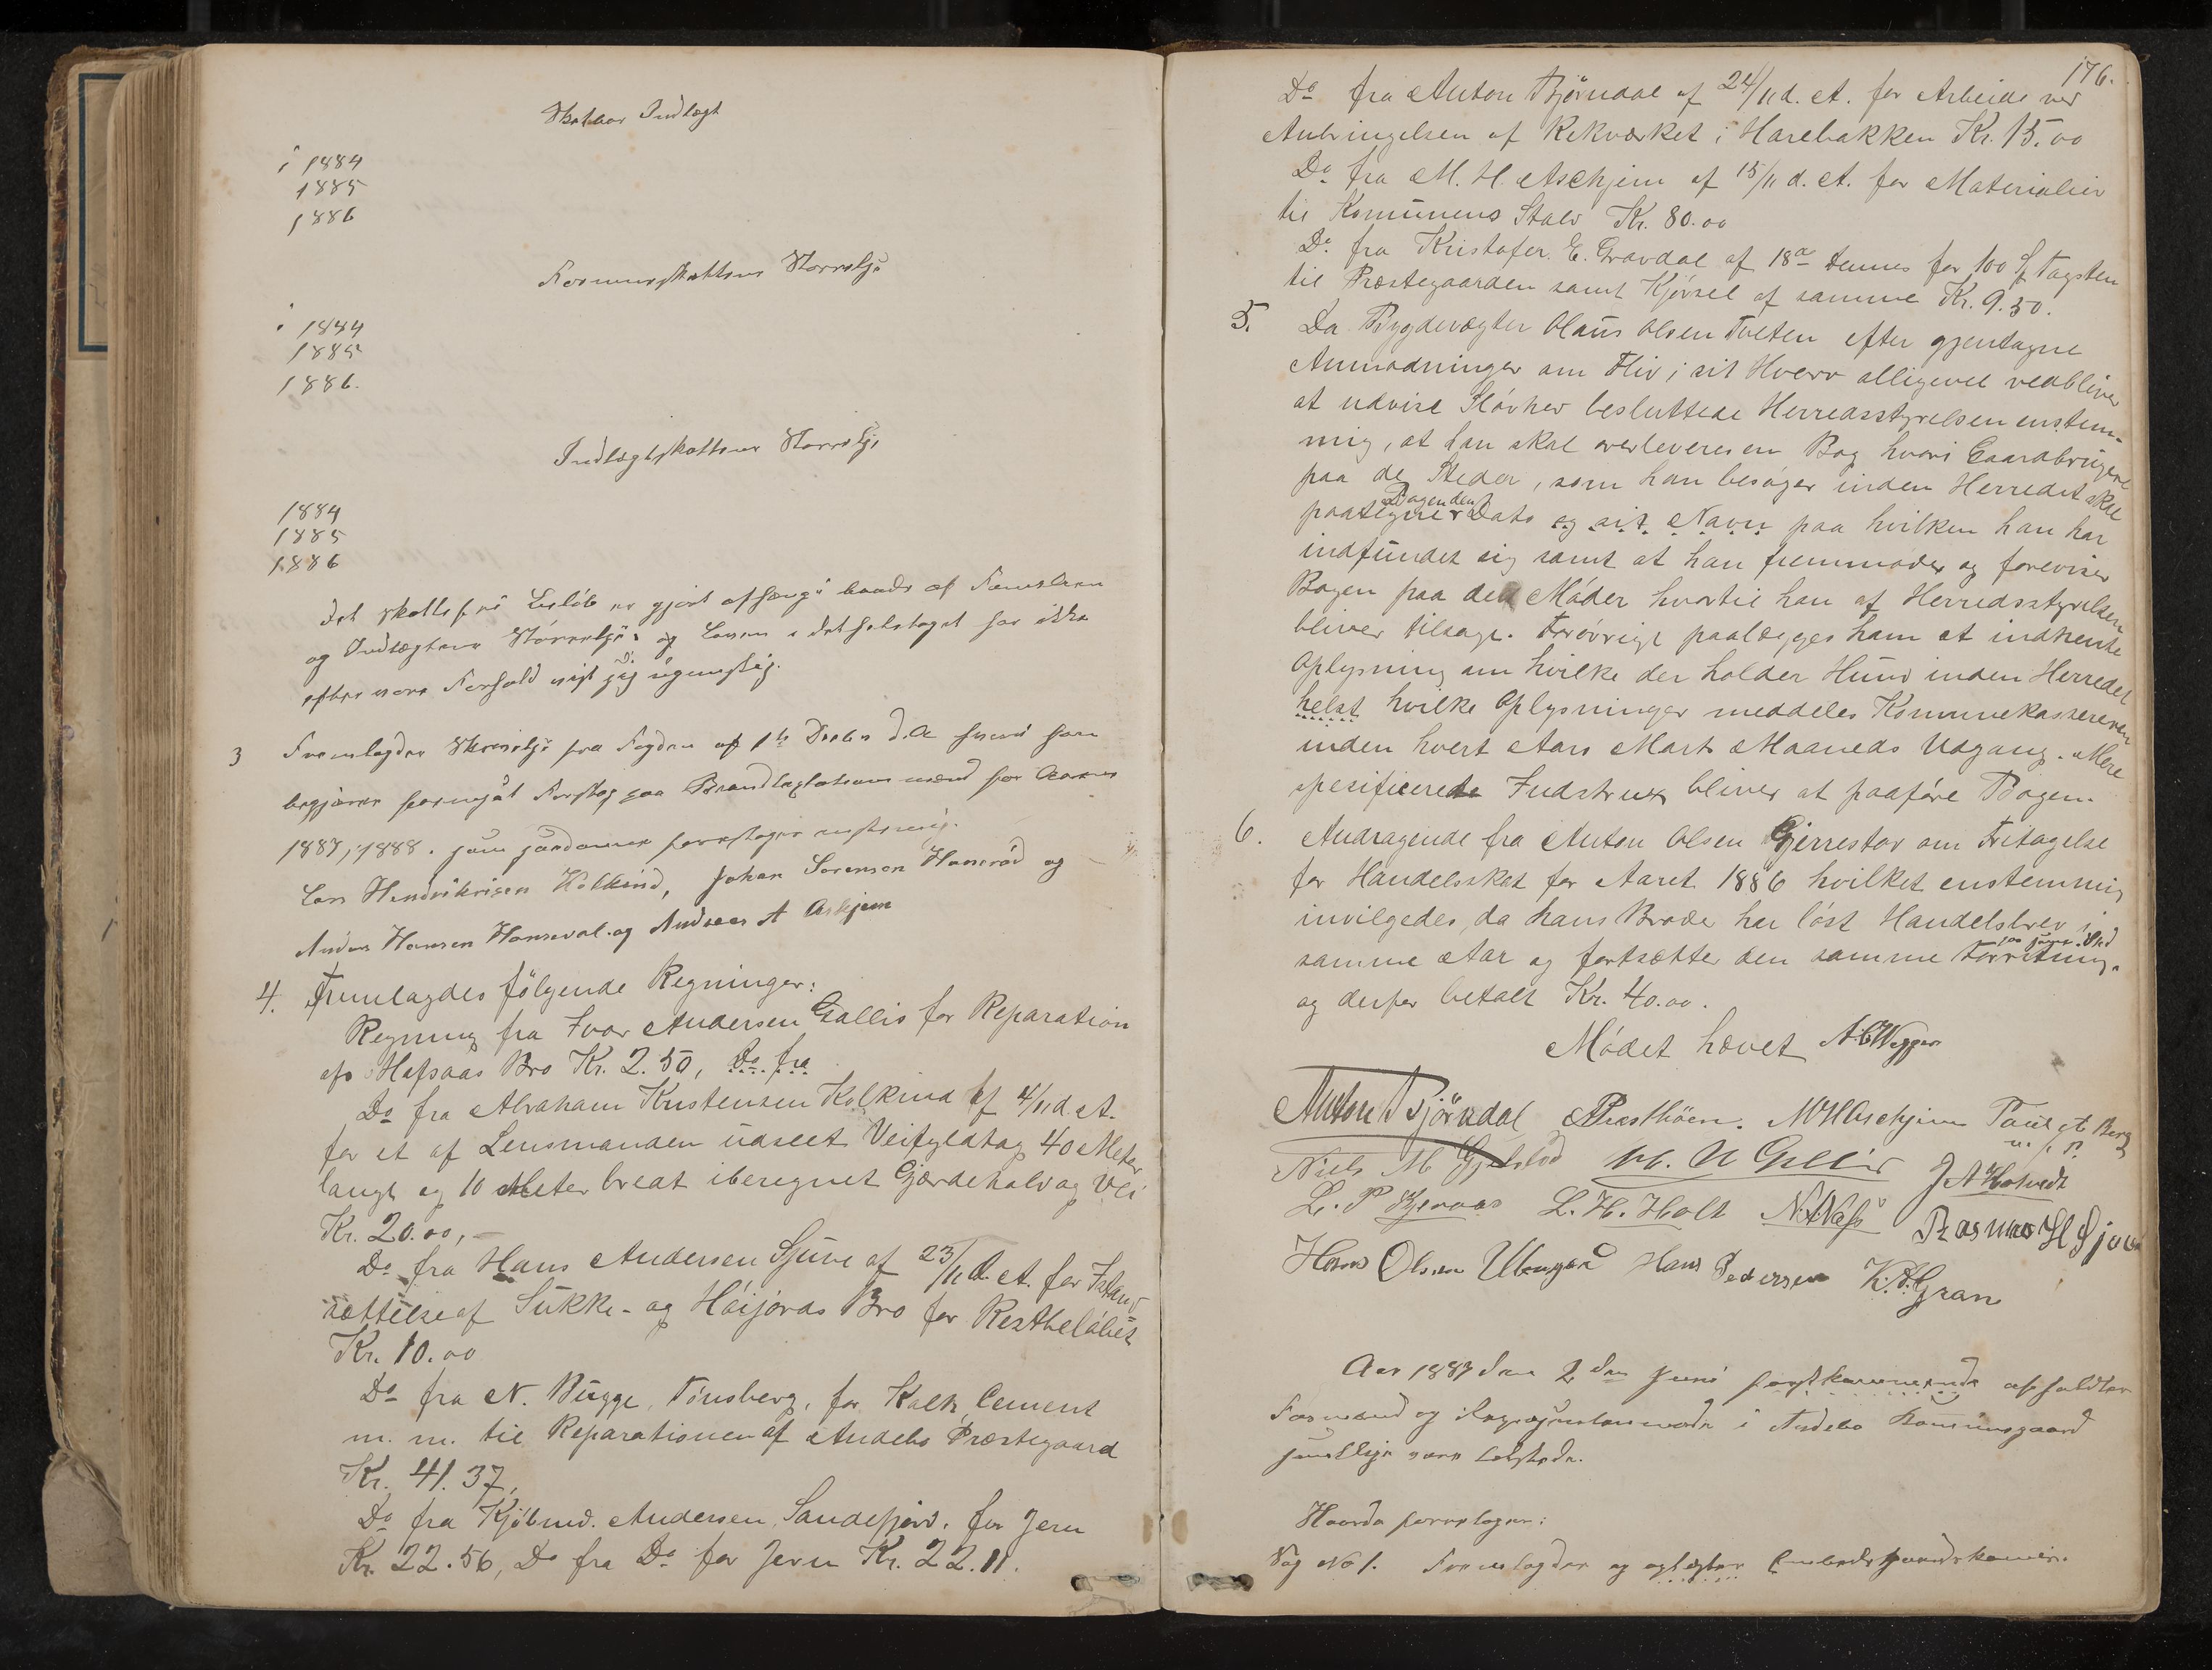 Skatbar Indtægt
i 1884
1885
1886
Formuesskattens Størrelse
i 1884
1885
1886.
Indtægtsskattens Størrelse
1884
1885
1886
Det skattefri Beløb er gjort afhængi baade af Familiens
og Indtægtens Størrelse og Loven i det heletaget har ikke
efter vore Forhold vist sig ugunstig.
3 Fremlagdes Skrivelse fra Fogden af 1ste Decbr d.A. hvori han
begjærer fornyet Forslag paa Brandtaxtationsmænd for Aarene
1887, 1888. som saadanne foresloges enstemig.
Lars Hendriksen Kolkind, Johan Sørensen Hanerød og
Anders Hansen Honseval. og Andreas A Askjem
4. Fremlagdes følgende Regninger:
Regning fra Ivar Andersen Gallis for Reparation
af Hafsaas Bro Kr. 2.50, Do fra
Do fra Abraham Kristensen Kolkind af 4/11 d. A.
for et af Lensmanden udseet Veifyldtag 40 Meter
langt og 10 Meter bredt iberegnet Gjærdehald og Vei
Kr. 20.00,-
Do fra Hans Andersen Sjure af 23/11 d. A. for Istand-
sættelse af Sukke- og Høijords Bro for Restbeløbet
Kr. 10.00
Do fra N. Bugge, Tønsberg, for Kalk, Cement
m. m. til Reparationen af Andebo Præstegaard
Kr. 41.37,
Do fra Kjøbmd. Andersen, Sandefjord, for Jern
Kr. 22.56, Do fra Do for Jern Kr. 22.11.
176.
Do fra Anton Bjørndal af 24/11 d. A. for Arbeide ved
Anbringelsen af Rekværket i Harebakken Kr. 15.00
Do fra M. H. Aschjem af 15/11 d. A. for Materialier
til Komunens Stald Kr. 80.00
Do. fra Kristofer E. Gravdal af 18de dennes for 100 St Tagsten
til Præstegaarden samt Kjørsel af samme Kr. 9.50.
5. Da Bygdevægter Olaus Olsen Tveten efter gjentagne
Anmodninger om Flid i sit Hverv alligevel vedbliver
at udvise Sløvhed besluttede Herredsstyrelsen enstem-
mig, at han skal overleveres en Bog hvori Gaardbrugere
paa de Steder, som han besøger inden Herredet skal
paategne Dagen den Dato og sit Navn paa hvilken han har
indfundet sig samt at han fremmøder og foreviser
Bogen paa de Møder hvortil han af Herredsstyrelsen
bliver tilsagt. Forøvrigt paalægges ham at indhente
Oplysning om hvilke der holder Hund inden Herredet
helst hvilke Oplysninger meddeles Kommunekassereren
inden hvert Aars Marts Maaneds Udgang. Mere
spesificerede Indstrux bliver at paaføre Bogen.
6. Andragende fra Anton Olsen Gjerrestad om Fritagelse
for Handelsskat for Aaret 1886 hvilket enstemmig
invilgedes, da hans Broder har løst Handelsbrev i
samme Aar og fortsætter den samme Forretning. paa samme Sted
og derfor betalt Kr. 40.00.
Mødet hævet A C Wegger
Anton Bjørndal Præsthöen. M H Aschjem Paul A Berg
m. f. P.
Niels M Gjelstod M. A Gallis J A Hotvedt
L. P Kjeraas L. H. Holt N. A. Næss Rasmus H Gjøve
Hans Olsen Ulengen Hans Pedersen K. A. Gran
Aar 1887 den 2den Juni førstkommende afholdtes
Formænd og Repræsentantmøde i Andebo Kommunegaard
samtlige vare tilstede.
Hvorda foretoges:
Sag No 1. Fremlagdes og